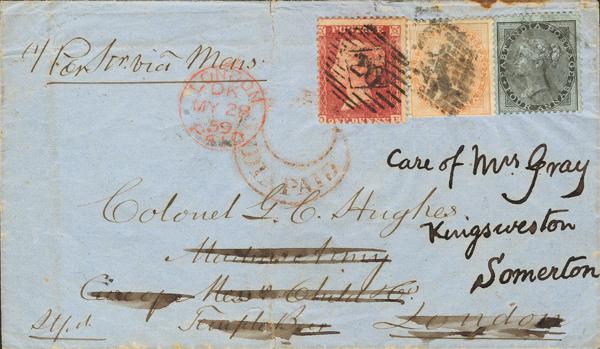 Per Str via Mars.
POSTAGE
ONE PENNY
EAST INDIA POSTAGE
FOUR ANNAS
LONDON
DK
MY 28
59
PAID
INDIA PAID
Care of Mrs Gray
Kingsweston
Somerton
Colonel G. C. Hughes
Madras Army
Care of Messrs Child & Co
Temple Bar
London
Stpd.